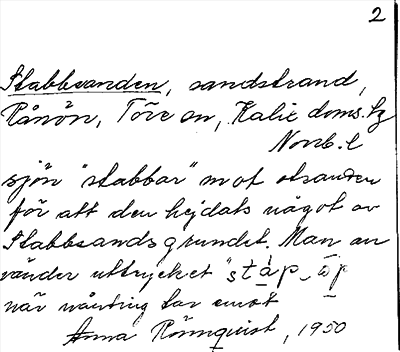 2
Stabbsanden, sandstrand,
Rånön, Töre sn, Kalix doms. tg
Norrb. l
sjön "stabbar" mot stranden
för att den hejdats något av
Stabbsandsgrundet. Man an
vänder uttrycket "ståp_
när nånting tar emot
Anna Rönnquist, 1950